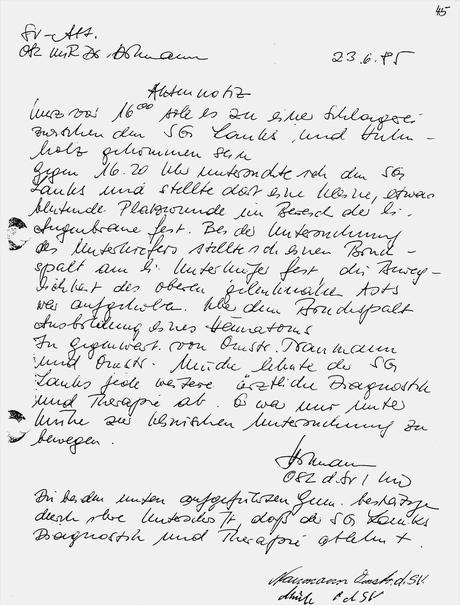 45
SV-Abt.
OSL MR Dr. Hohmann 23.6.85
Aktennotiz
Kurz vor 16⁰⁰ soll es zu einer Schlägerei
zwischen dem SG Lanks und
holz gekommen sein
Gegen 16.20 Uhr untersuchte ich den SG
Lanks und stellte dort eine kleine, etwas
blutende Platzwunde im Bereich der li.
Augenbraue fest. Bei der Untersuchung
des Unterkiefers stellte ich einen Bruch-
spalt am li. Unterkiefer fest, die Beweg-
lichkeit des oberen gelenknahen Asts
war aufgehoben. Über dem Bruchspalt
Ausbildung eines Hämatoms
In Gegenwart von Omstr.
und Omstr. lehnte der SG
Lanks jede weitere ärztliche Diagnostik
und Therapie ab. Er war nur unter
Mühe zur klinischen Untersuchung zu
bewegen.
Hohmann
OSL d. SV
Die beiden unten aufgeführten Gen. bestätigen
durch ihre Unterschrift, daß der SG Lanks
Diagnostik und Therapie ablehnt.
Omstr. d. SV
d. SV